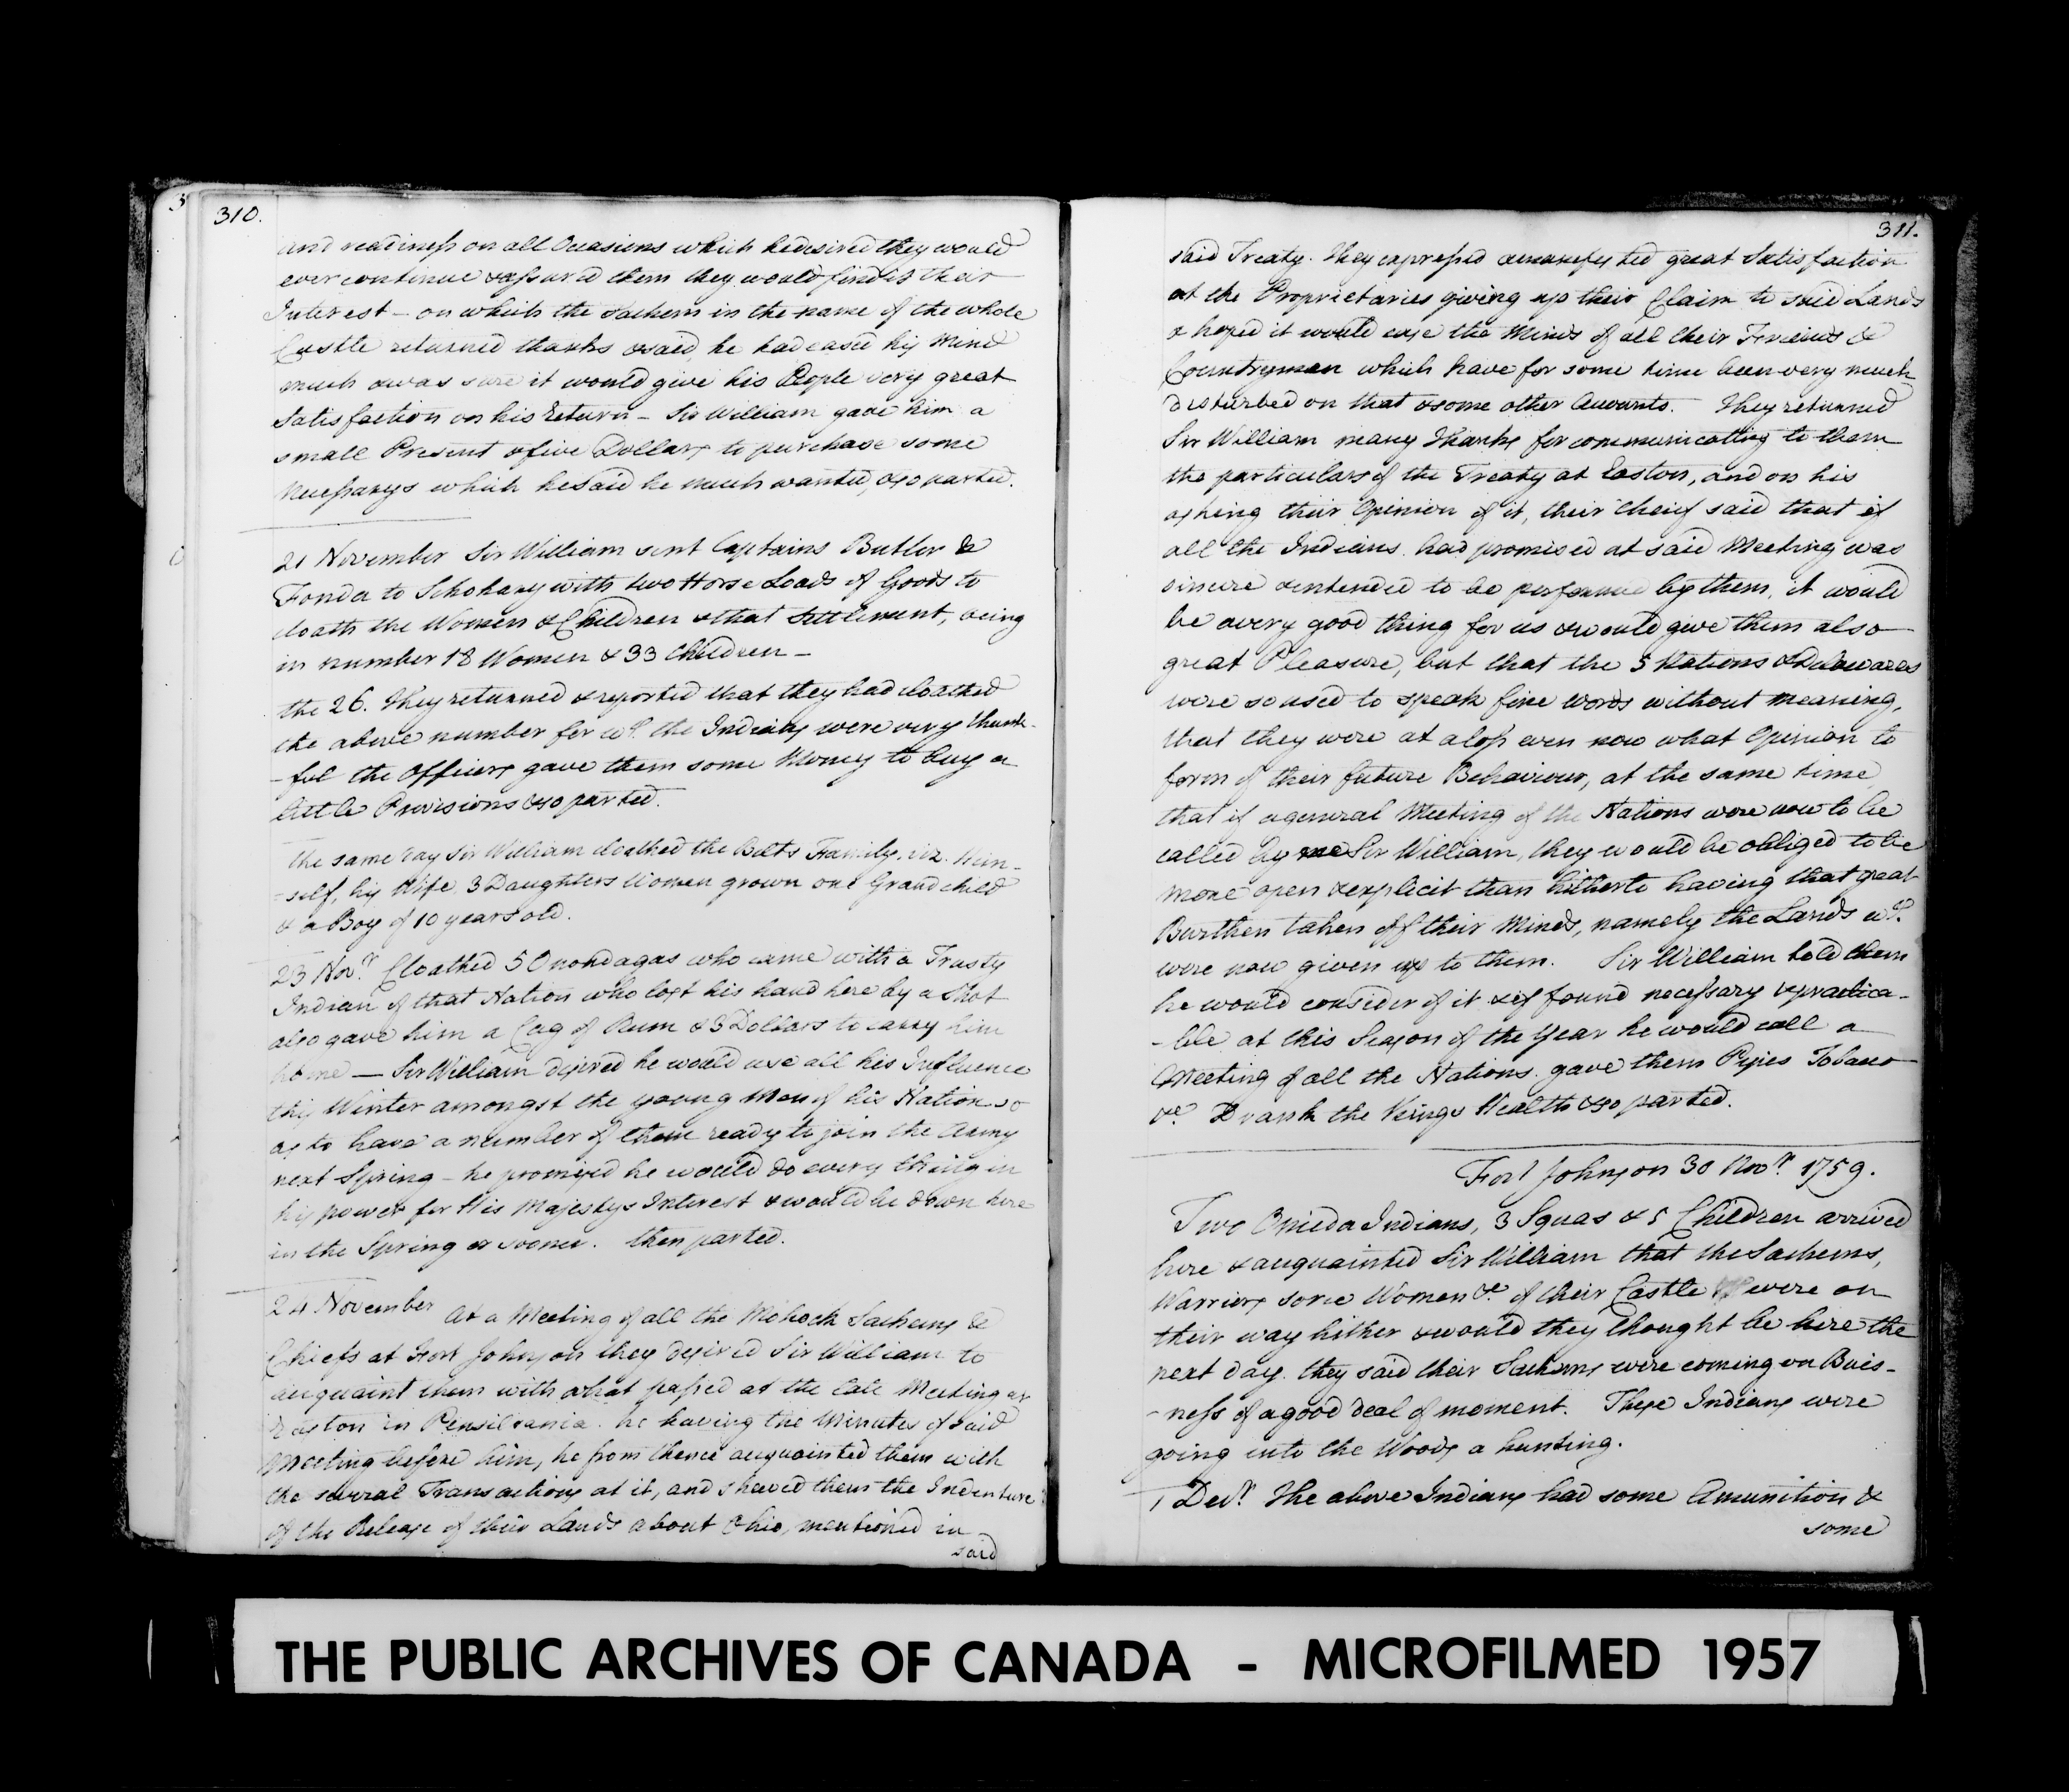 310.
and readiness on all Occasions which he desired they would
ever continue & assured them they would find it their
Interest – on which the Sachem in the name of the whole
Castle returned thanks & said he had eased his Mind
much & was sure it would give his People very great
Satisfaction on his Return – Sir William gave him a
small Present & five Dollars to purchase some
Necessarys which he said he much wanted, & so parted.
21 November Sir William sent Captains Butler &
Fonda to Schohary with two Horse Loads of Goods to
cloath the Women & Children & that Settlement, being
in number 18 Women & 33 Children –
the 26. They returned & reported that they had cloathed
the above number for wch. the Indians were very thank-
-ful the Officers gave them some Money to buy a
little Provisions & so parted.
The same day Sir William cloathed the Belts Family. viz. Him-
-self, his Wife 3 Daughters Women grown one Grand child
& a Boy of 10 years old.
23 Novr. Cloathed 5 Onondagas who came with a Trusty
Indian of that Nation who lost his hand here by a Shot
also gave him a Cag of Rum & 3 Dollars to carry him
home — Sir William desired he would use all his Influence
this Winter amongst the young Men of his Nation so
as to have a number of them ready to join the Army
next Spring – he promised he would do every thing in
his power for His Majestys Interest & would be down here
in the Spring or sooner. then parted.
24 November At a Meeting of all the Mohock Sachems &
Chiefs at Fort Johnson they desired Sir William to
acquaint them with what passed at the late Meeting at
Easton in Pensilvania. he having the Minutes of said
Meeting before him, he from thence acquainted them with
the several Transactions at it, and shewed them the Indenture
of the Release of their Lands about Ohio, mentioned in
said
311.
said Treaty. They expressed & manifested great Satisfaction
at the Proprietaries giving up their Claim to said Lands
& hoped it would ease the Minds of all their Friends &
Countrymen which have for some time been very much
disturbed on that & some other Accounts. They returned
Sir William many Thanks for communicating to them
the particulars of the Treaty at Easton, and on his
asking their Opinion of it, their Cheif said that if
all the Indians had promised at said Meeting was
sincere & intended to be performed by them, it would
be a very good thing for us & would give them also
great Pleasure, but that the 5 Nations & Delawares
were so used to speak fine words without meaning,
that they were at a loss even now what Opinion to
form of their future Behaviour, at the same time
that if a general Meeting of the Nations were now to be
called by me Sir William, they would be obliged to be
more open & explicit than hitherto having that great
Burthen taken off their Minds, namely the Lands wch.
were now given up to them. Sir William told them
he would consider of it & if found necessary & practica-
-ble at this Season of the Year he would call a
Meeting of all the Nations. gave them Pipes Tobacco
&c. Drank the Kings Health & so parted.
Fort Johnson 30 Novr. 1759.
Two Oneida Indians, 3 Squas & 5 Children arrived
here & acquainted Sir William that the Sachems,
Warriors some Women &c. of their Castle were on
their way hither & would they thought be here the
next day. they said their Sachems were coming on Buis-
-ness of a good deal of moment. These Indians were
going into the Woods a hunting.
1 Decr. The above Indians had some Amunition &
some
THE PUBLIC ARCHIVES OF CANADA - MICROFILMED 1957